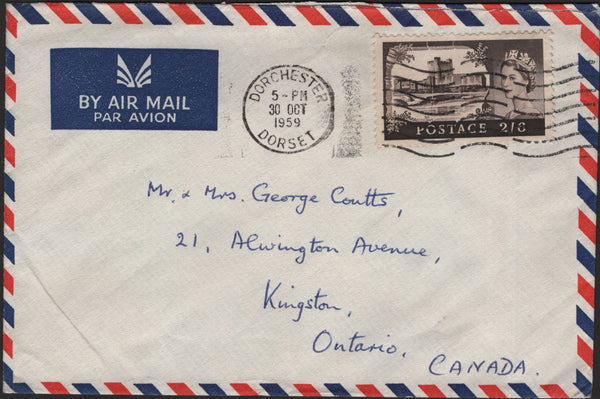 BY AIR MAIL
PAR AVION
DORCHESTER
5-PM
30 OCT
1959
DORSET
POSTAGE 2/6
Mr. & Mrs. George Coutts,
21, Alwington Avenue,
Kingston,
Ontario.
CANADA.